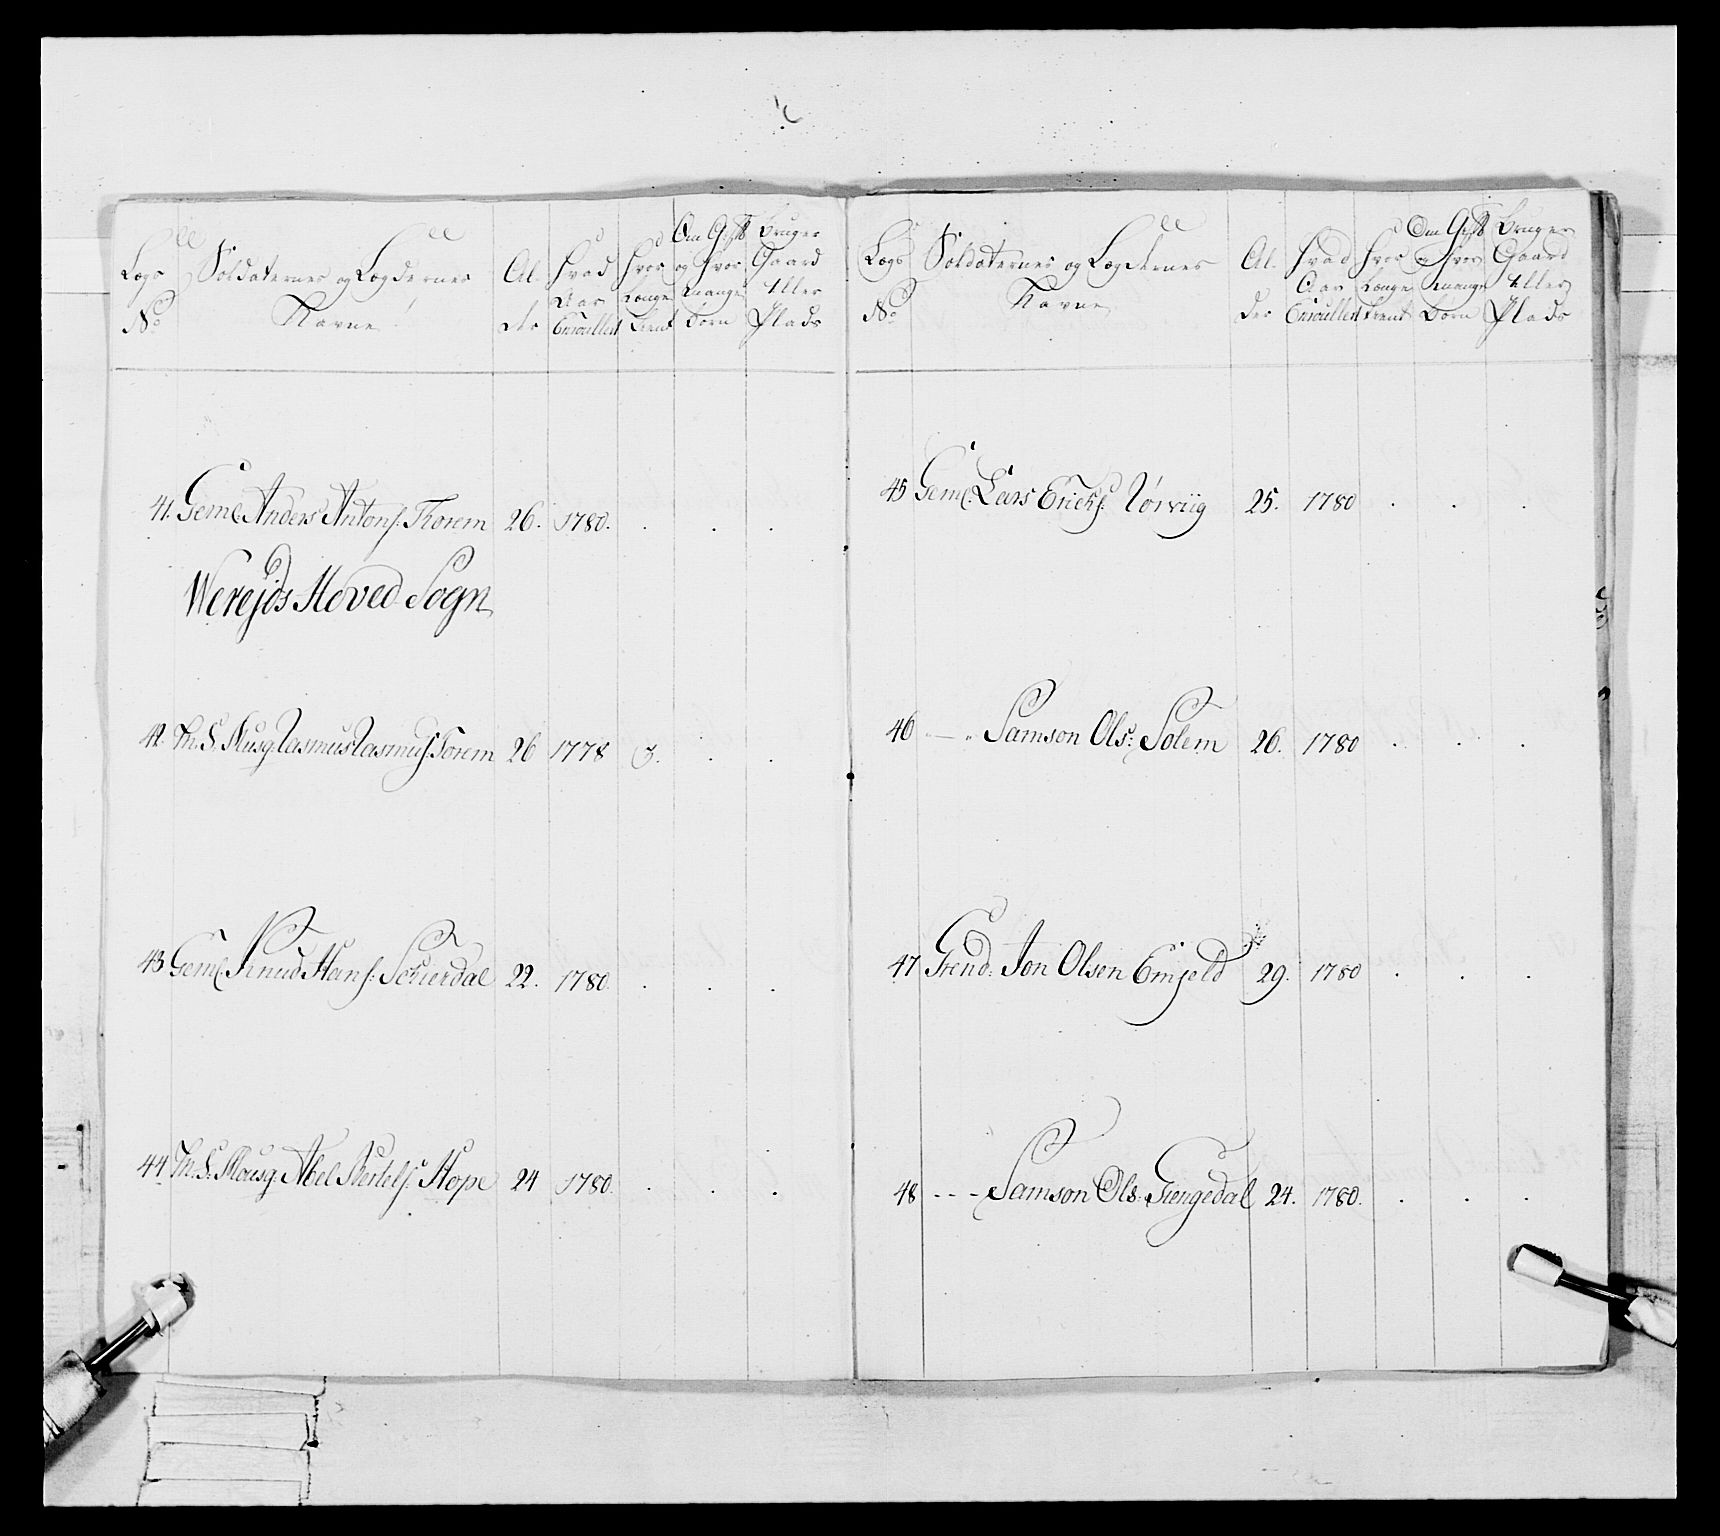 Lægs No
Soldaternes og Lægdernes Navne
Al- der
Hvad Aar Enroulleret
Hvor Længe tient
Om Gift og Hvor mange Børn
Bruger Gaard eller Plads
41. Geml. Anders Antons: Thorem 26. 1780. . . .
Werejds Hoved Sogn
42. Th. S. Musq. Rasmus Rasmus: Torem 26 1778 3. . .
43 Geml. Knud Hans: Schierdal 22. 1780. . . .
44 Th. S. Mousq. Abel Bertels: Hope 24 1780. . . .
Lægs No
Soldaternes og Lægdernes Navne
Al- der
Hvad Aar Enroulleret
Hvor Længe tient
Om Gift og Hvor mange Børn
Bruger Gaard Eller Plads
45 Geml. Lars Ericks: Nörviig 25. 1780 . . .
46 - " - Samson Ols: Solem 26. 1780 . . .
47 Grend: Jon Olsen Emjeld 29. 1780 . . .
48 - - - Samson Ols: Giengedal 24. 1780. . . .